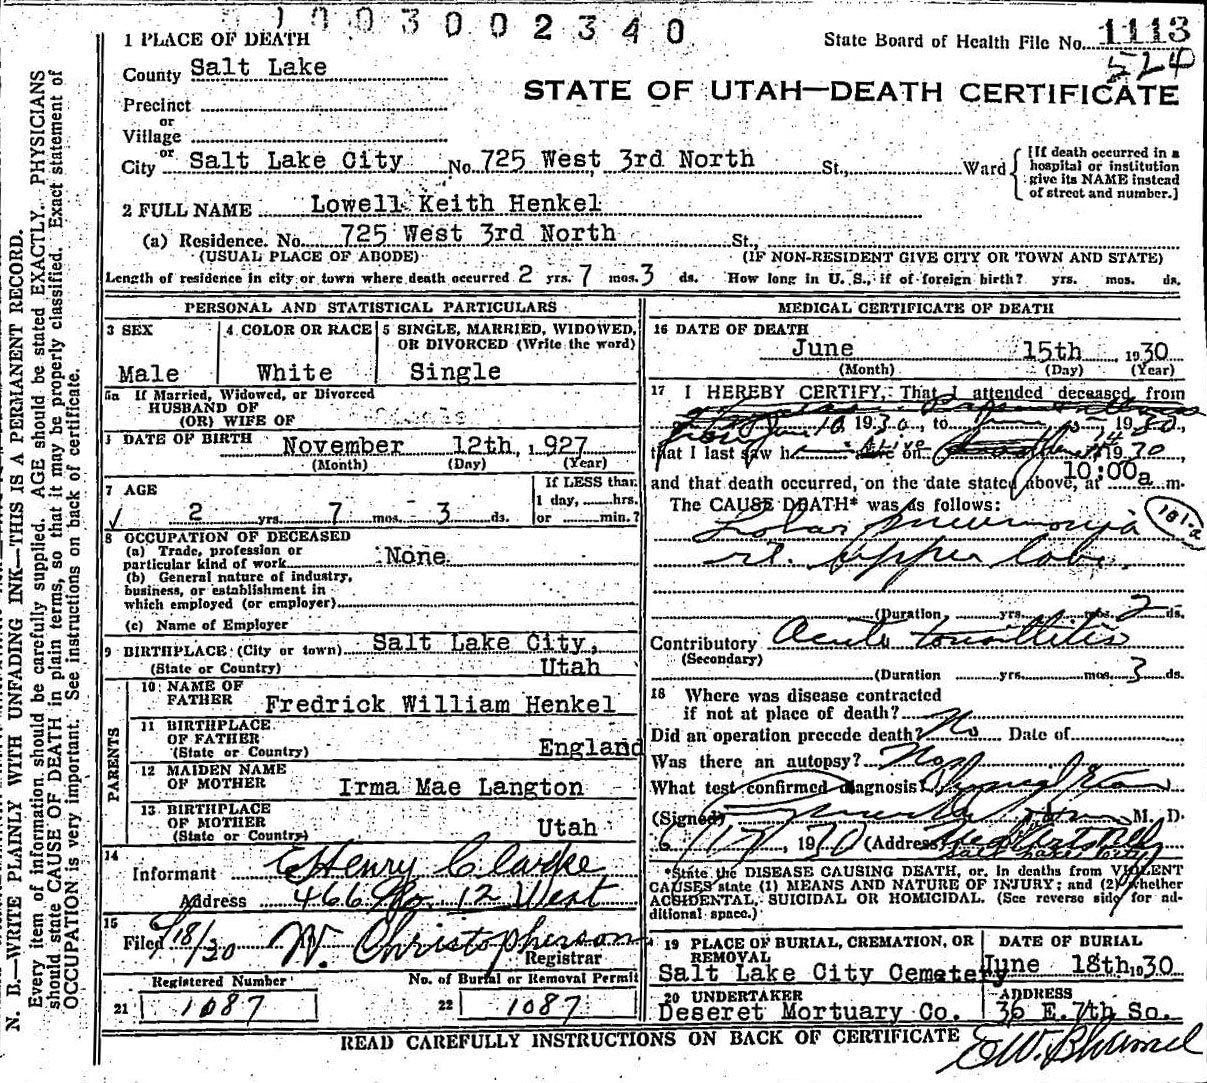 1003002340
1 PLACE OF DEATH
State Board of Health File No. 1113
524
County Salt Lake
STATE OF UTAH—DEATH CERTIFICATE
Precinct
or
Village
or
City Salt Lake City No. 725 West 3rd North St., Ward
[If death occurred in a hospital or institution give its NAME instead of street and number.]
2 FULL NAME Lowell Keith Henkel
(a) Residence. No. 725 West 3rd North St.,
(USUAL PLACE OF ABODE) (IF NON-RESIDENT GIVE CITY OR TOWN AND STATE)
Length of residence in city or town where death occurred 2 yrs. 7 mos. 3 ds. How long in U. S., if of foreign birth? yrs. mos. ds.
PERSONAL AND STATISTICAL PARTICULARS
3 SEX
Male
4 COLOR OR RACE
White
5 SINGLE, MARRIED, WIDOWED, OR DIVORCED (Write the word)
Single
5a If Married, Widowed, or Divorced
HUSBAND OF
(OR) WIFE OF
DATE OF BIRTH November 12th, 1927
(Month) (Day) (Year)
7 AGE
2 yrs. 7 mos. 3 ds.
If LESS than
1 day, hrs.
or min.?
8 OCCUPATION OF DECEASED
(a) Trade, profession or
particular kind of work None
(b) General nature of industry,
business, or establishment in
which employed (or employer)
(c) Name of Employer
9 BIRTHPLACE (City or town) Salt Lake City,
(State or Country) Utah
PARENTS
10 NAME OF
FATHER Fredrick William Henkel
11 BIRTHPLACE
OF FATHER
(State or Country) England
12 MAIDEN NAME
OF MOTHER Irma Mae Langton
13 BIRTHPLACE
OF MOTHER
(State or Country) Utah
14
Informant Henry Clarke
Address 466 So. 12 West
15
Filed 18/30 W. Christopherson
Registrar
Registered Number
21 1087
No. of Burial or Removal Permit
22 1087
MEDICAL CERTIFICATE OF DEATH
16 DATE OF DEATH
June 15th, 1930
(Month) (Day) (Year)
17 I HEREBY CERTIFY, That I attended deceased from
1930, to 1930,
that I last saw h alive on 14 1930,
and that death occurred, on the date stated above, at 10:00a m.
The CAUSE DEATH* was as follows:
Lobar pneumonia
rt. upper lobe.
(Duration yrs. mos. 2 ds.
Contributory Acute tonsillitis
(Secondary)
(Duration yrs. mos. 3 ds.
18 Where was disease contracted
if not at place of death?
Did an operation precede death? No Date of
Was there an autopsy?
What test confirmed diagnosis?
(Signed) M. D.
6/17, 1930 (Address)
Salt Lake City
*State the DISEASE CAUSING DEATH, or, in deaths from VIOLENT
CAUSES state (1) MEANS AND NATURE OF INJURY; and (2) whether
ACCIDENTAL, SUICIDAL OR HOMICIDAL. (See reverse side for ad-
ditional space.)
19 PLACE OF BURIAL, CREMATION, OR REMOVAL
Salt Lake City Cemetery
DATE OF BURIAL
June 18th 1930
20 UNDERTAKER
Deseret Mortuary Co.
ADDRESS
36 E. 7th So.
READ CAREFULLY INSTRUCTIONS ON BACK OF CERTIFICATE
N. B.—WRITE PLAINLY WITH UNFADING INK—THIS IS A PERMANENT RECORD.
Every item of information should be carefully supplied. AGE should be stated EXACTLY. PHYSICIANS
should state CAUSE OF DEATH in plain terms, so that it may be properly classified. Exact statement of
OCCUPATION is very important. See instructions on back of certificate.